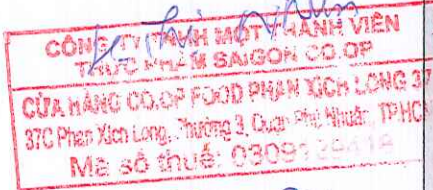 CÔNG TY TNHH MỘT THÀNH VIÊN
THỰC PHẨM SAIGON CO.OP
CỬA HÀNG CO.OP FOOD PHAN XÍCH LONG 37
37C Phan Xích Long, Phường 3, Quận Phú Nhuận, TP.HCM
Mã số thuế: